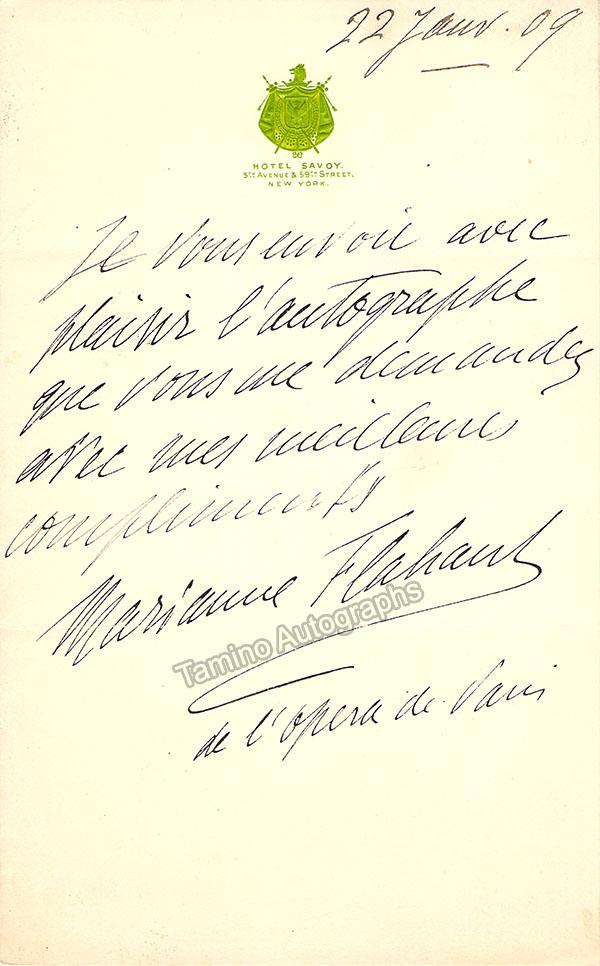 22 Janv. 09
HOTEL SAVOY.
5TH AVENUE & 59TH STREET,
NEW YORK.
Je vous envoie avec
plaisir l'autographe
que vous me demandez
avec mes meilleurs
compliments
Marianne Flahaut
Tamino Autographs
de l'opera de Paris